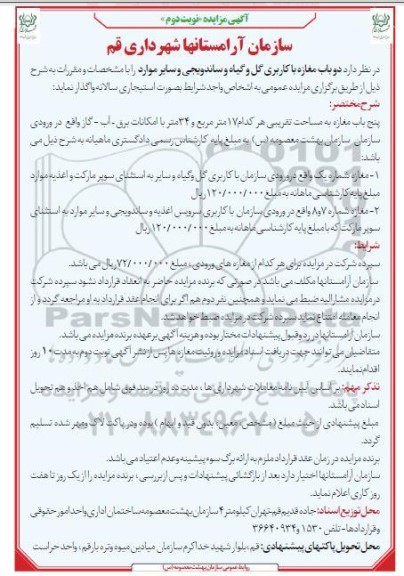 آگهی مزایده «نوبت دوم»
سازمان آرامستانها شهرداری قم
در نظر دارد دو باب مغازه با کاربری گل و گیاه و ساندویچی و سایر موارد را با مشخصات و مقررات به شرح
ذیل از طریق برگزاری مزایده عمومی به اشخاص واجد شرایط بصورت استیجاری سالانه واگذار نماید:
شرح مختصر:
پنج باب مغازه به مساحت تقریبی هر کدام ۱۷ متر مربع و ۳۴ متر با امکانات برق - آب - گاز واقع در ورودی
سازمان سازمان بهشت معصومه (س) به مبلغ پایه کارشناس رسمی دادگستری ماهیانه به شرح ذیل می
باشد:
۱- مغازه شماره یک واقع در ورودی سازمان با کاربری گل و گیاه و سایر به استثنای سوپر مارکت و اغذیه موارد
مبلغ پایه کارشناسی ماهانه به مبلغ ۱۲۰/۰۰۰/۰۰۰ ریال
۲- مغازه شماره ۷و۸ واقع در ورودی سازمان با کاربری سرویس اغذیه و ساندویچی و سایر موارد به استثنای
سوپر مارکت که با مبلغ پایه کارشناسی ماهانه به مبلغ ۱۲۰/۰۰۰/۰۰۰ ریال
شرایط:
سپرده شرکت در مزایده برای هر کدام از مغازه های ورودی، مبلغ ۷۲/۰۰۰/۰۰۰ ریال می باشد.
سازمان آرامستانها مکلف می باشد در صورتی که برنده مزایده حاضر به انعقاد قرارداد نشود سپرده شرکت
در مزایده مشارالیه ضبط می نماید و همچنین نفر دوم هم اگر برای انجام عقد قرارداد به او مراجعه گردد و از
انجام معامله امتناع نماید سپرده شرکت در مزایده ضبط خواهد شد.
سازمان آرامستانها در رد و قبول پیشنهادات مختار بوده و هزینه آگهی بر عهده برنده مزایده می باشد.
متقاضیان می توانند جهت دریافت اسناد مزایده و روئیت مغازه ها پس از نشر آگهی نوبت دوم به مدت ۱۰ روز
اقدام نمایند.
تذکر مهم: بر اساس آیین نامه معاملات شهرداری ها، مدت ده روز در متد فوق شامل هم اخذ و هم تحویل
اسناد می باشد.
مبلغ پیشنهادی از حیث مبلغ (مشخص، معین، بدون قید و ابهام) بوده و در پاکت لاک و مهر شده تسلیم
گردد.
برنده مزایده در زمان عقد قرارداد ملزم به ارائه برگ سوء پیشینه و عدم اعتیاد می باشد.
سازمان آرامستانها اختیار دارد بعد از بازگشائی پیشنهادات و پس از بررسی، برنده مزایده را از یک روز تا هفت
روز کاری اعلام نماید.
محل توزیع اسناد: جاده قدیم قم-تهران کیلومتر ۴ سازمان بهشت معصومه ساختمان اداری واحد امور حقوقی
و قراردادها - تلفن ۱۵۳۰ و ۳۶۶۴۰۹۳۴
محل تحویل پاکتهای پیشنهادی: قم، بلوار شهید خداکرم سازمان میادین میوه و تره بار قم، واحد حراست
روابط عمومی سازمان بهشت معصومه(س)
ParsNamadData
۰۲۱-۸۸۳۴۹۶۷۰-۵